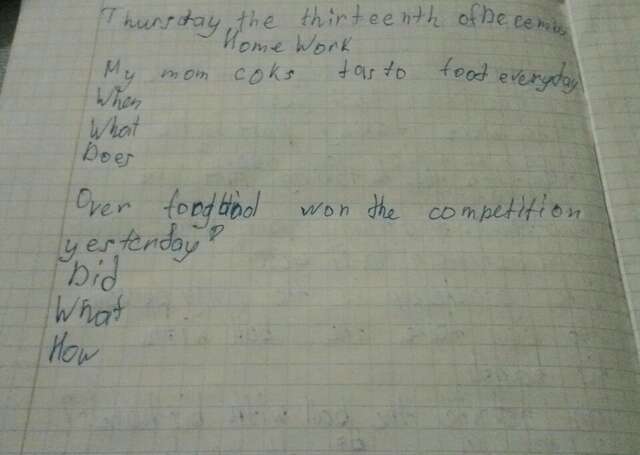 Thursday the thirteenth of December
Home Work
My mom coks tasto food everyday
When
What
Does
Over won the competition
yesterday?
Did
What
How